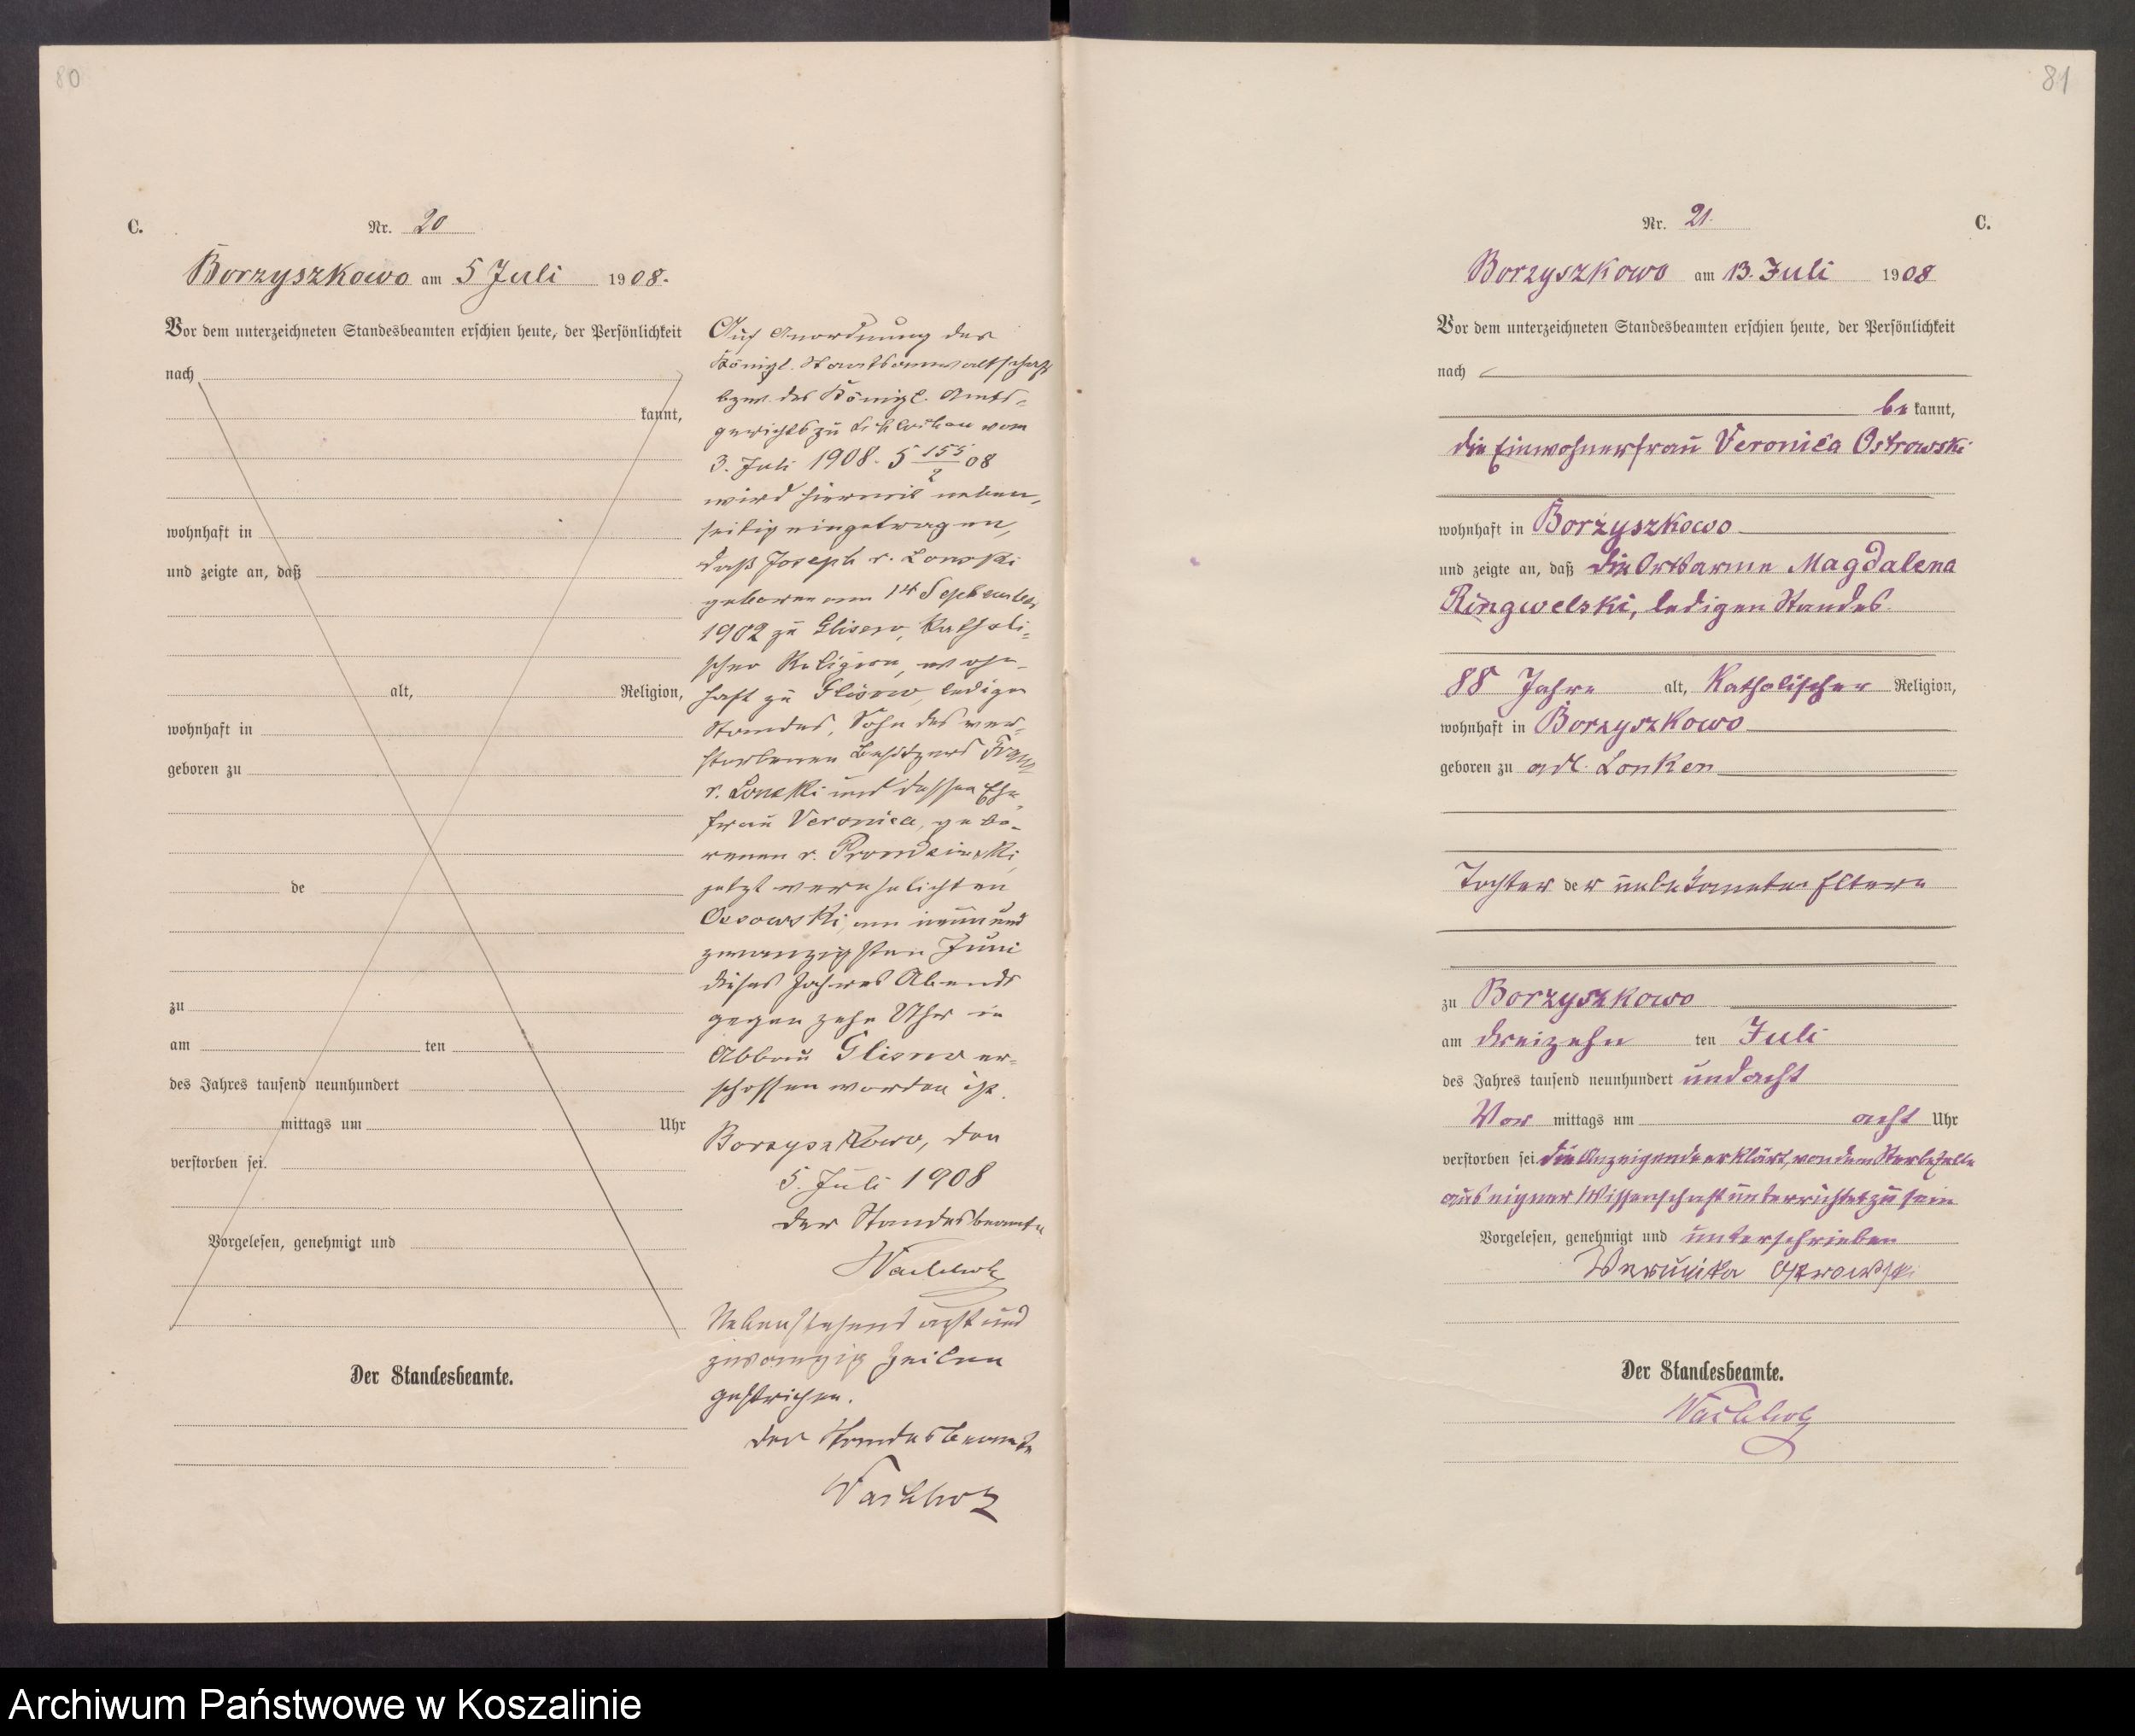 80
C.
Nr. 20
Borzyszkowo am 5 Juli 1908.
Vor dem unterzeichneten Standesbeamten erschien heute, der Persönlichkeit
nach
kannt,
wohnhaft in
und zeigte an, daß
alt, Religion,
wohnhaft in
geboren zu
de
zu
am ten
des Jahres tausend neunhundert
mittags um Uhr
verstorben sei.
Vorgelesen, genehmigt und
Der Standesbeamte.
Auf Anordnung der
Königl. Staatsanwaltschaft
bezw. des Königl. Amts-
gerichts zu Schlochau vom
3. Juli 1908. 5 155/2 08
wird hiermit neben-
seitig eingetragen,
daß Joseph v. Lonski
geboren am 14 September
1902 zu Glisno, katholi-
scher Religion, wohn-
haft zu Glisno, ledigen
Standes, Sohn des ver-
storbenen Besitzers Franz
v. Lonski und dessen Ehe-
frau Veronica, gebo-
renen v. Prondzinski,
jetzt verehelichten
Ossowski, am neunund
zwanzigsten Juni
dieses Jahres Abends
gegen zehn Uhr in
Abbau Glisno er-
schossen worden ist.
Borzyszkowo, den
5. Juli 1908
Der Standesbeamte
Wachholz
Nebenstehend acht und
zwanzig Zeilen
gestrichen.
Der Standesbeamte
Wachholz
81
Nr. 21.
C.
Borzyszkowo am 13. Juli 1908
Vor dem unterzeichneten Standesbeamten erschien heute, der Persönlichkeit
nach
be kannt,
die Einwohnerfrau Veronica Ostrowski
wohnhaft in Borzyszkowo
und zeigte an, daß die Ortsarme Magdalena
Ringwelski, ledigen Standes
88 Jahre alt, Katholischer Religion,
wohnhaft in Borzyszkowo
geboren zu adl. Lonken
Tochter der unbekannten Eltern
zu Borzyszkowo
am dreizehn ten Juli
des Jahres tausend neunhundert und acht
Vor mittags um acht Uhr
verstorben sei. Die Anzeigende erklärt, von dem Sterbefalle
aus eigner Wissenschaft unterrichtet zu sein
Vorgelesen, genehmigt und unterschrieben
Werunika Ostrowski
Der Standesbeamte.
Wachholz
Archiwum Państwowe w Koszalinie